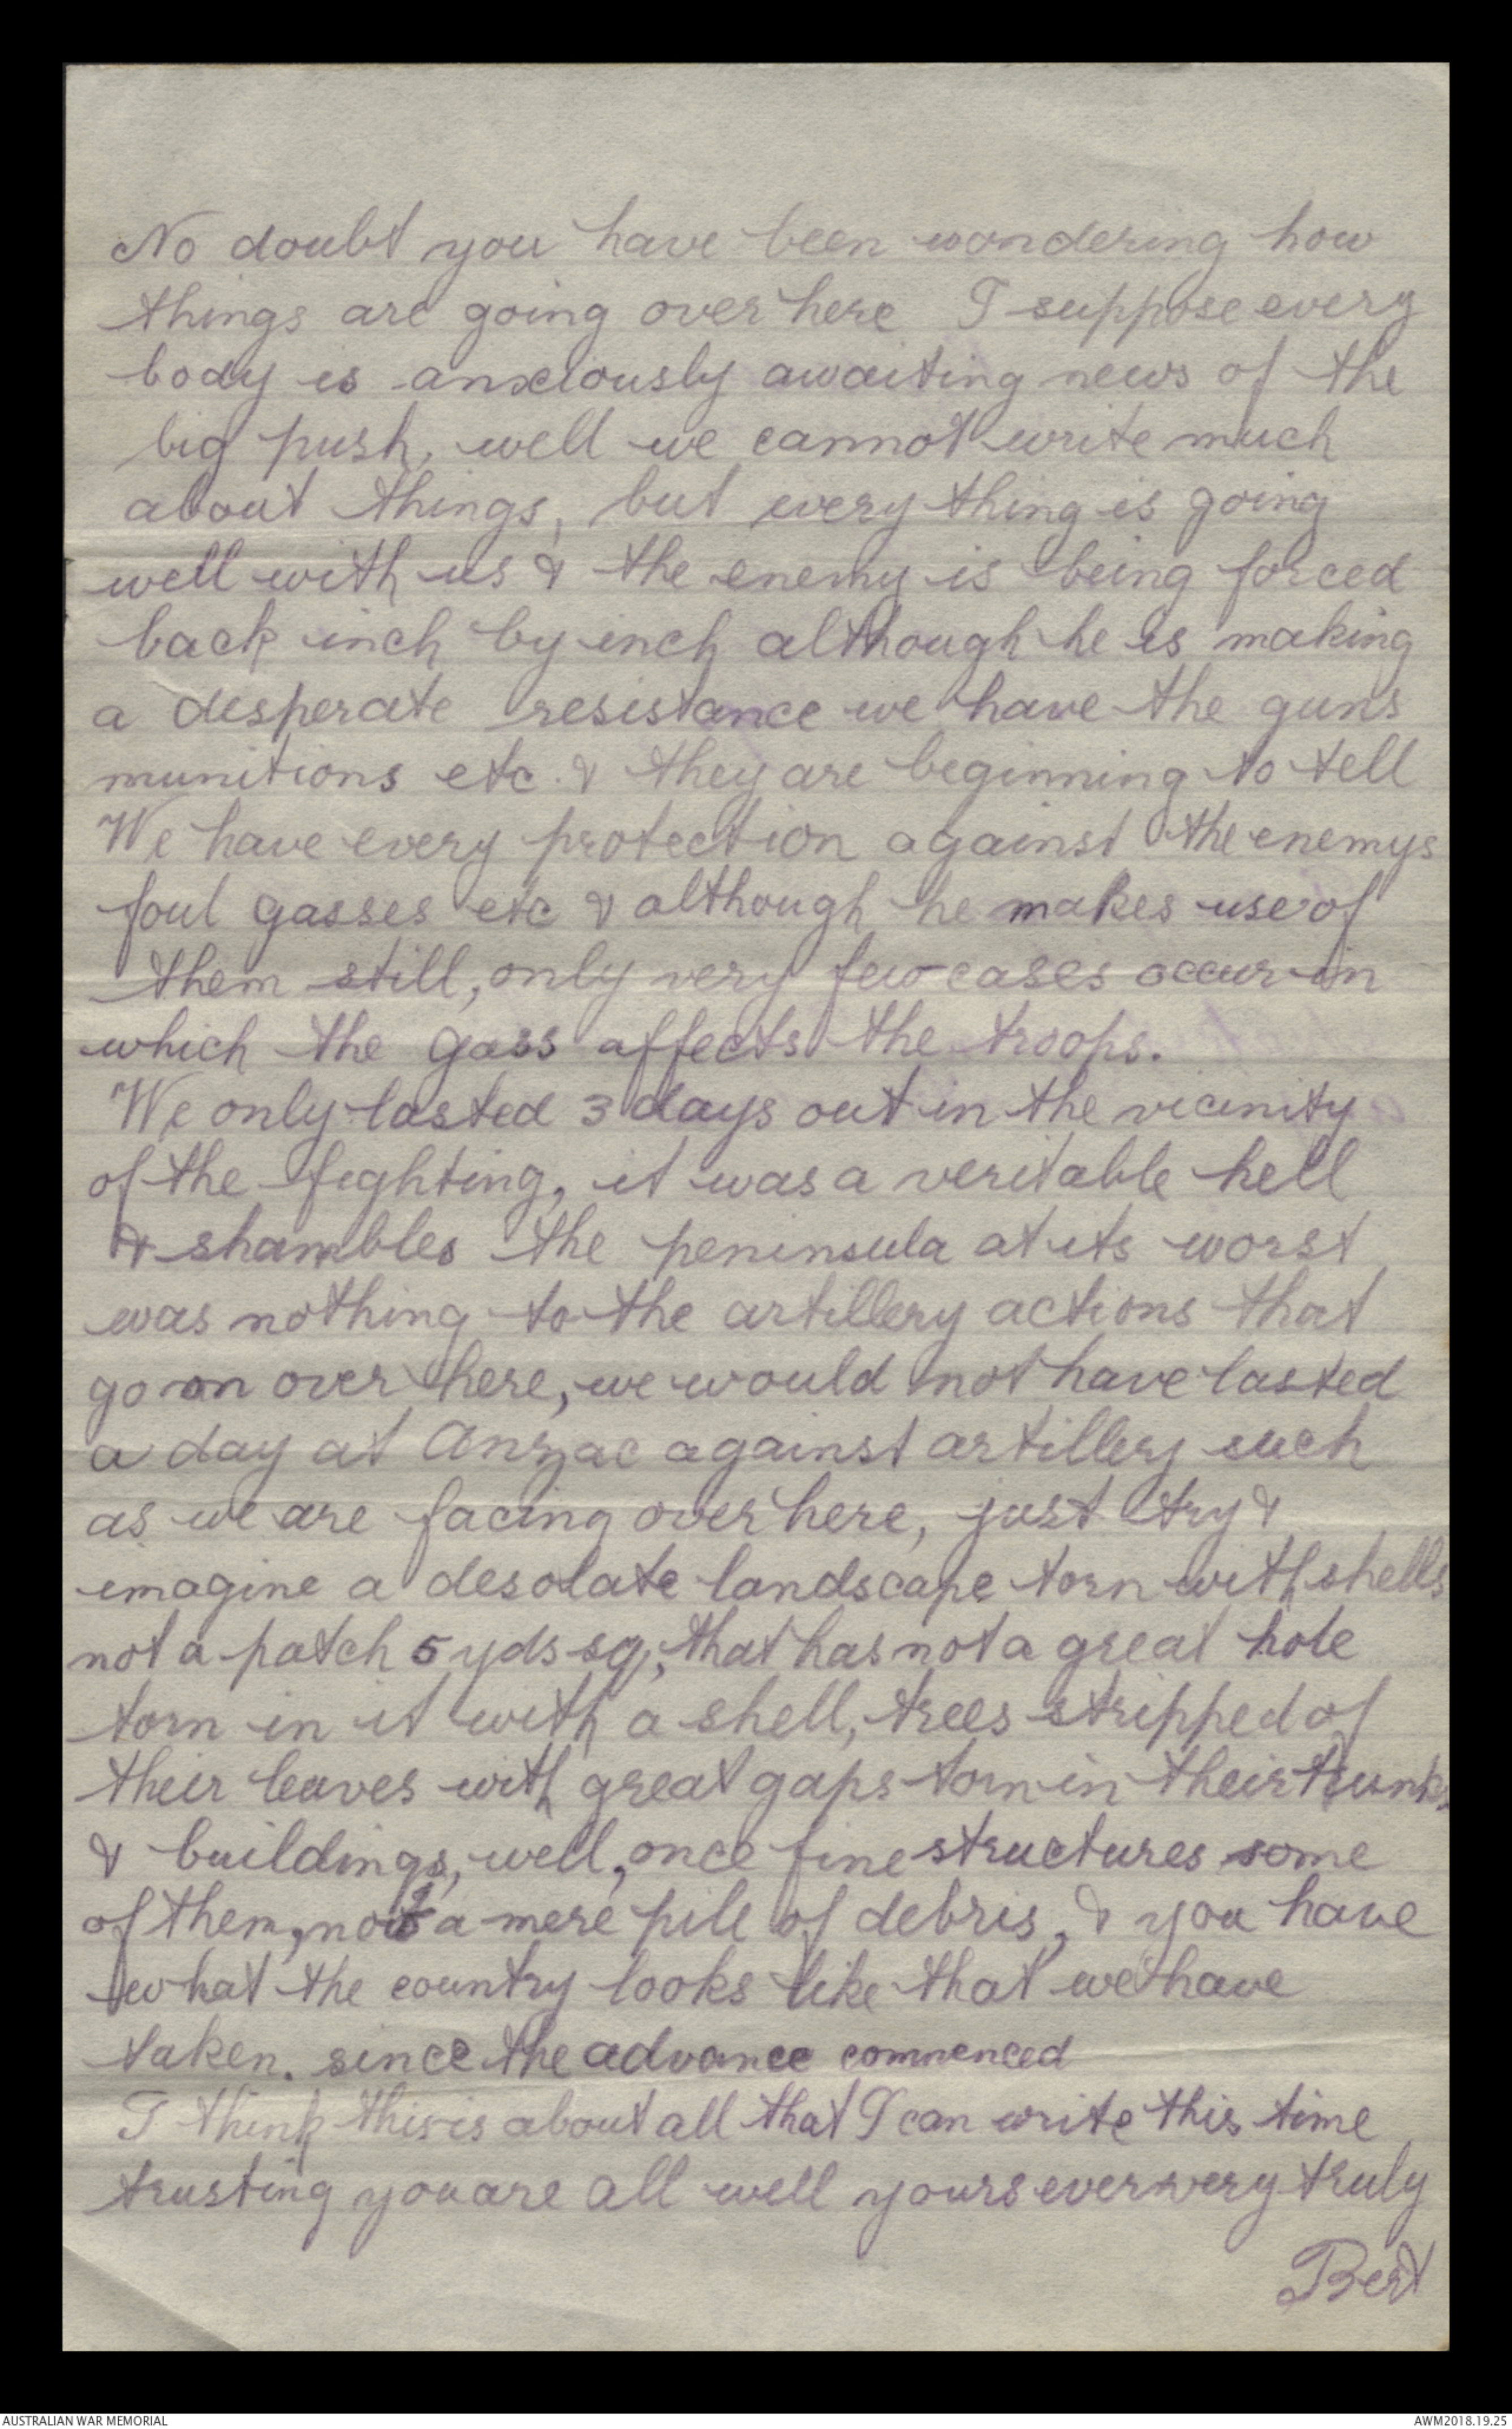 No doubt you have been wondering how
things are going over here I suppose every
body is anxiously awaiting news of the
big push, well we cannot write much
about things, but every thing is going
well with us & the enemy is being forced
back inch by inch although he is making
a desperate resistance we have the guns
munitions etc. & they are beginning to tell
We have every protection against the enemys
foul gasses etc & although he makes use of
them still, only very few cases occur in
which the gass affects the troops.
We only lasted 3 days out in the vicinity
of the fighting, it was a veritable hell
& shambles the peninsula at its worst
was nothing to the artillery actions that
go on over here, we would not have lasted
a day at Anzac against artillery such
as we are facing over here, just try &
imagine a desolate landscape torn with shells
not a patch 5 yds sq, that has not a great hole
torn in it with a shell, trees stripped of
their leaves with great gaps torn in their trunks
& buildings, well, once fine structures some
of them, now a mere pile of debris, & you have
what the country looks like that we have
taken. since the advance commenced
I think this is about all that I can write this time
trusting you are all well yours ever very truly
Bert
AUSTRALIAN WAR MEMORIAL
AWM2018.19.25